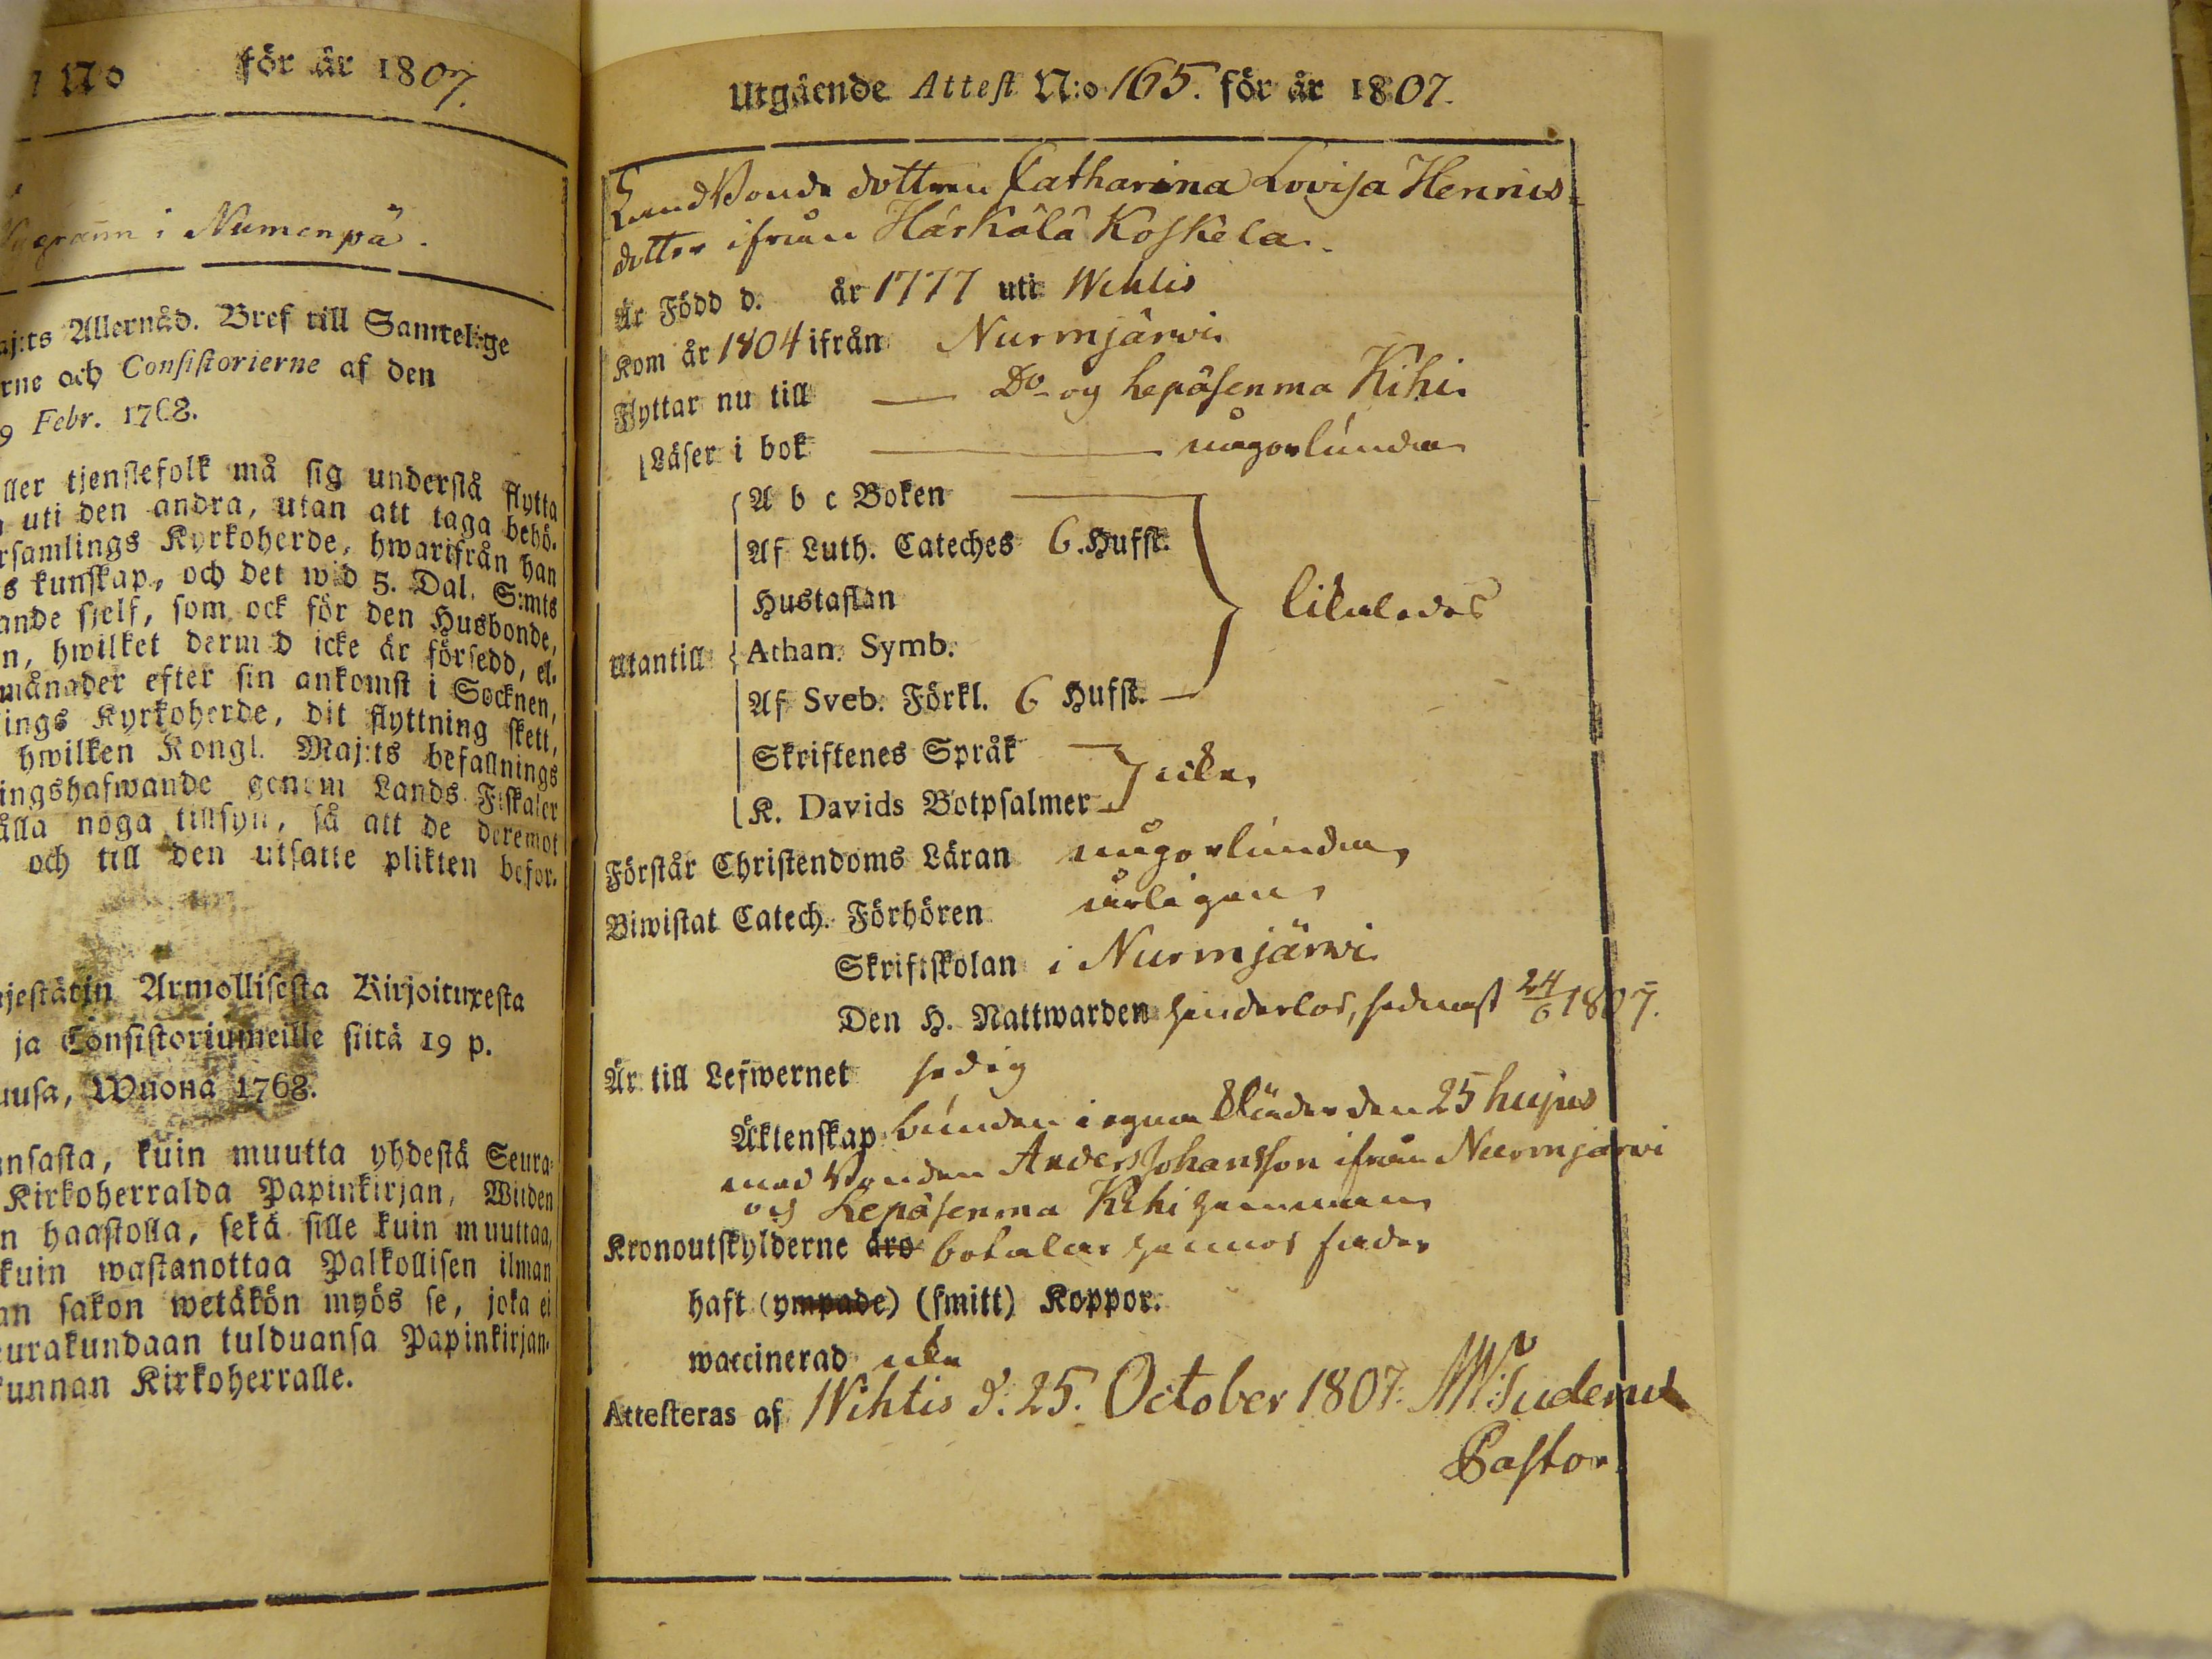 No för år 1807.
Nygrann i Numenpä.
aj:ts Allernåd. Bref till Samtelige
rne och Consistorierne af den
9 Febr. 1768.
ller tjenstefolk må sig understå flytta
uti den andra, utan att taga behö-
rsamlings Kyrkoherde, hwarifrån han
s kunskap, och det wid 5. Dal. S:mts
ande sjelf, som ock för den Husbonde,
n, hwilket dermed icke är försedd, el-
månader efter sin ankomst i Socknen,
ings Kyrkoherde, dit flyttning skett,
hwilken Kongl. Maj:ts befallnings
ingshafwande genom Lands Fiskaler
ålla noga tillsyn, så att de deremot
och till den utsatte plikten befor-
ajestätin Armollisesta Kirjoituxesta
ja Consistoriumeille siitä 19 p.
uusa, Wuona 1768.
ansasta, kuin muutta yhdestä Seura-
Kirkoherralda Papinkirjan, Wiiden
n haastolla, sekä sille kuin muuttaa,
kuin wastanottaa Palkollisen ilman
an sakon wetäkön myös se, joka ei
eurakundaan tulduansa Papinkirjan-
kunnan Kirkoherralle.
Utgående Attest N:o 165. för år 1807.
Landbonde dottren Catharina Lovisa Henrics
dotter ifrån Härkälä Koskela.
Är Född d. år 1777 uti Wihtis
Kom år 1804 ifrån Nurmjärwi
Flyttar nu till Do og Lepäsenma Kihi.
Läser i bok någorlunda
A b c Boken
Af Luth. Cateches 6. Hufst.
Hustaflan likaledes
Utantill Athan. Symb.
Af Sveb. Förkl. 6 Hufst.
Skriftenes Språk icke
K. Davids Botpsalmer
Förstår Christendoms Läran någorlunda
Biwistat Catech. Förhören årligen
Skriftskolan i Nurmjärwi
Den H. Nattwarden hinderlös, sednast 24/6 1807.
Är till Lefwernet sedig
Äktenskap bunden i egna kläder den 25 hujus
med Bonden Anders Johansson ifrån Nurmjärwi
och Lepäsenma Kihi hemman
Kronoutskylderne äro betalar hennes fader
haft (ympade) (smitt) Koppor.
waccinerad icke
Attesteras af Wihtis d. 25. October 1807.
Pastor